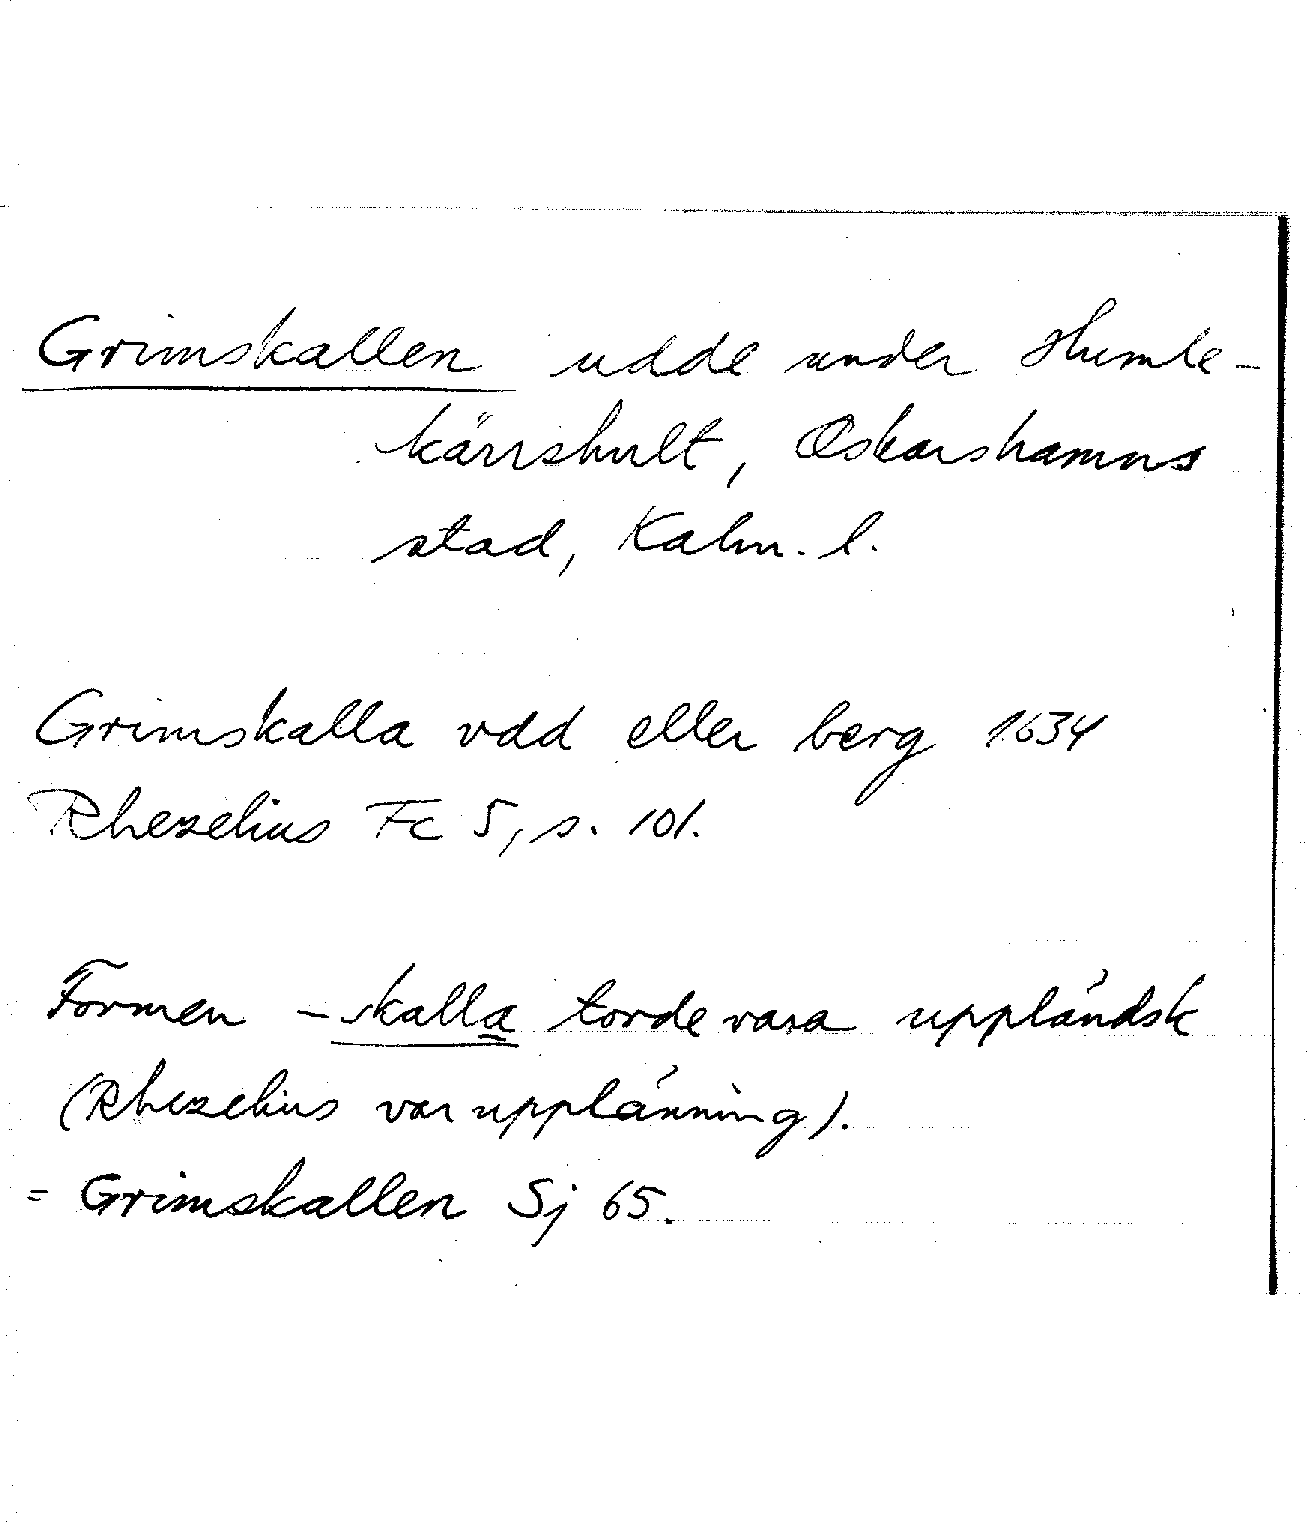 Grimskallen udde under Humle-
kärrshult, Oskarshamns
stad, Kalm. l.
Grimskalla vdd eller berg 1634
Rhezelius Fc 5, s. 101.
Formen -skalla torde vara uppländsk
(Rhezelius var upplänning).
= Grimskallen Sj 65.